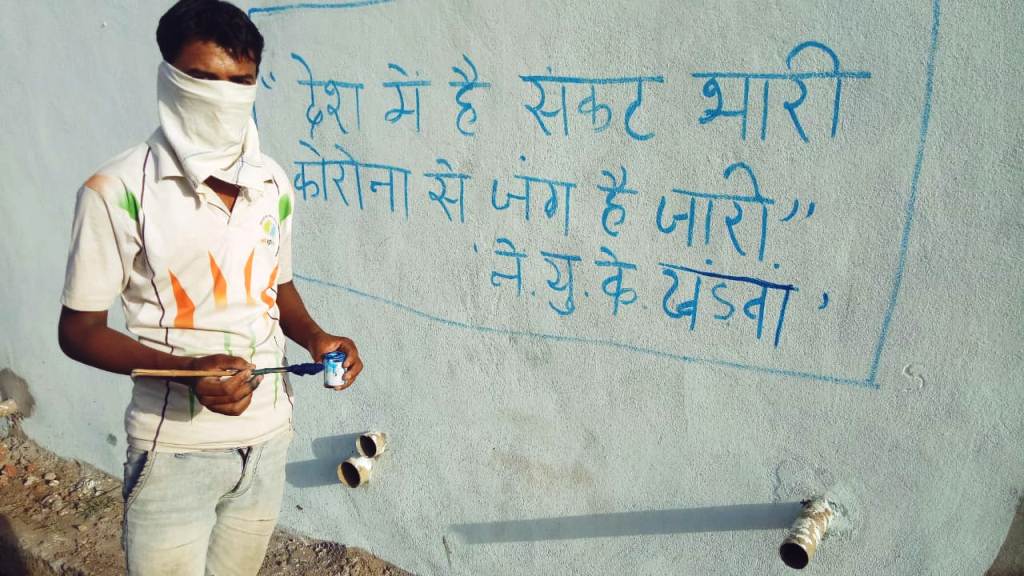 " देश में है संकट भारी
कोरोना से जंग है जारी"
' ने. यु. के. खंडवा '